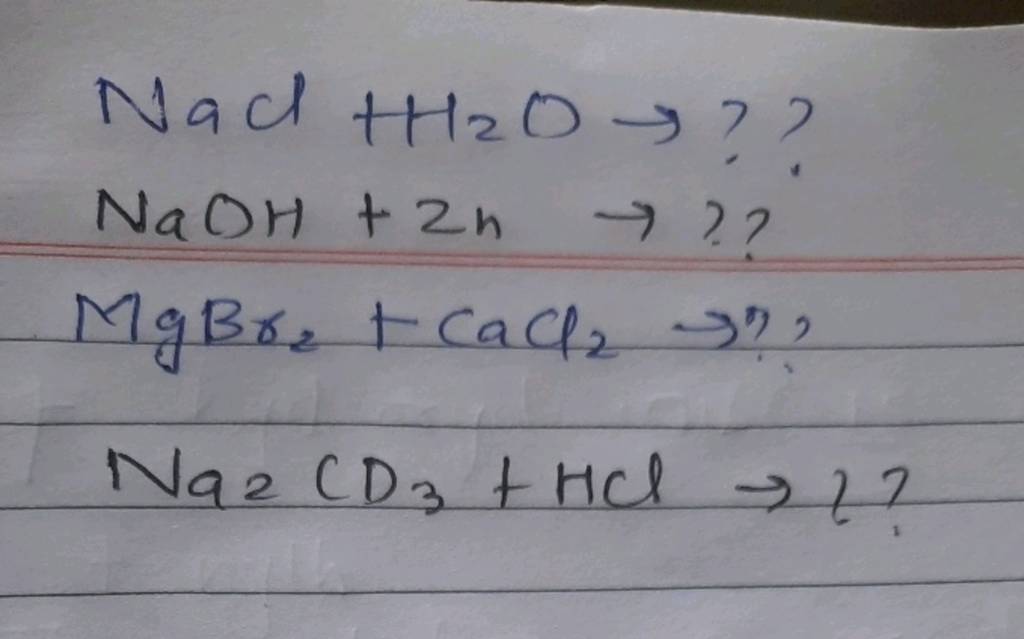 Nacl + H2O → ??
NaOH + Zn → ??
MgBr2 + CaCl2 → ??
Na2 CO3 + HCl → ??